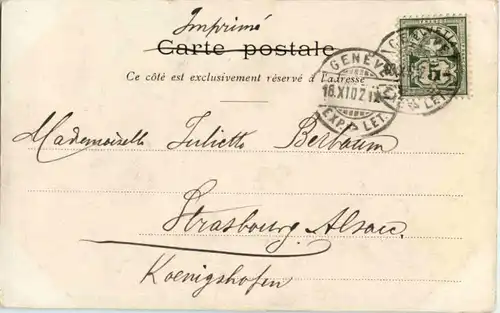 Imprimé
Carte postale
Ce côté est exclusivement réservé à l'adresse
GENÈVE
18.XI.02.IX
EXP. LET.
5
Mademoiselle Juliette Berbaum
Strasbourg Alsace
Koenigshofen